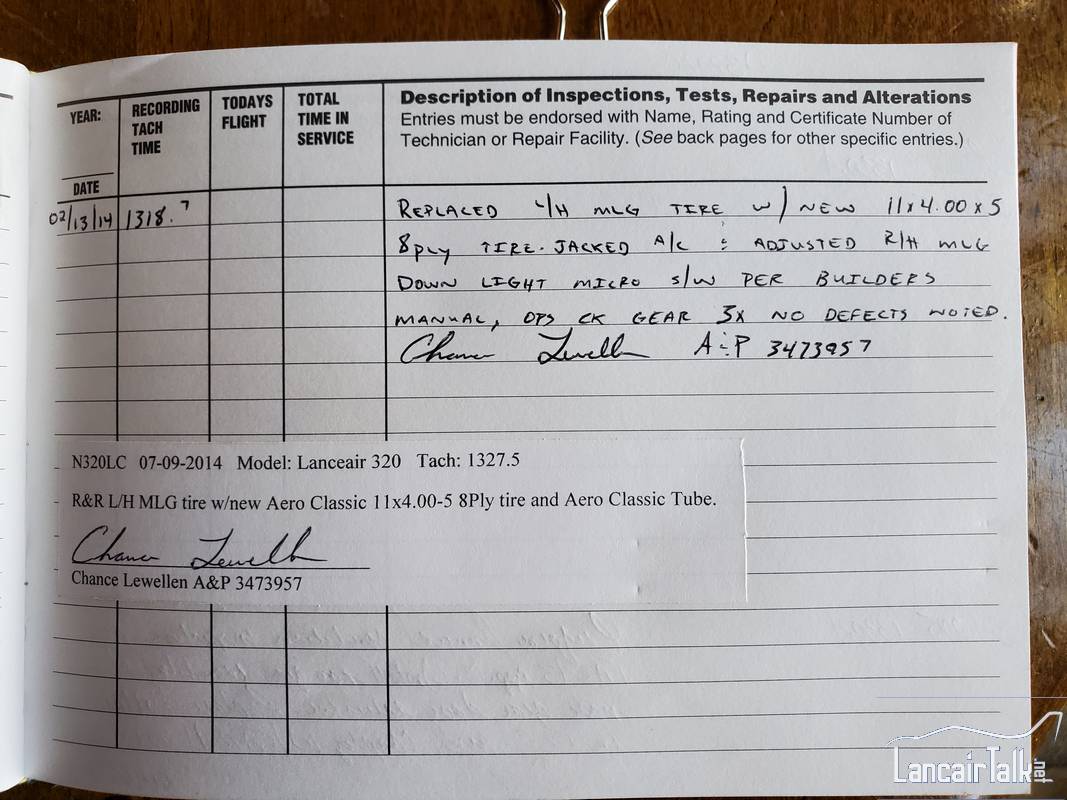 YEAR:
DATE
RECORDING TACH TIME
TODAYS FLIGHT
TOTAL TIME IN SERVICE
Description of Inspections, Tests, Repairs and Alterations
Entries must be endorsed with Name, Rating and Certificate Number of
Technician or Repair Facility. (See back pages for other specific entries.)
02/13/14 1318.7 REPLACED L/H MLG TIRE W/ NEW 11x4.00x5
8ply TIRE. JACKED A/C & ADJUSTED R/H MLG
DOWN LIGHT MICRO S/W PER BUILDERS
MANUAL, OPS CK GEAR 3X NO DEFECTS NOTED.
Chance Lewellen A&P 3473957
N320LC 07-09-2014 Model: Lanceair 320 Tach: 1327.5
R&R L/H MLG tire w/new Aero Classic 11x4.00-5 8Ply tire and Aero Classic Tube.
Chance Lewellen
Chance Lewellen A&P 3473957
LancairTalk.net